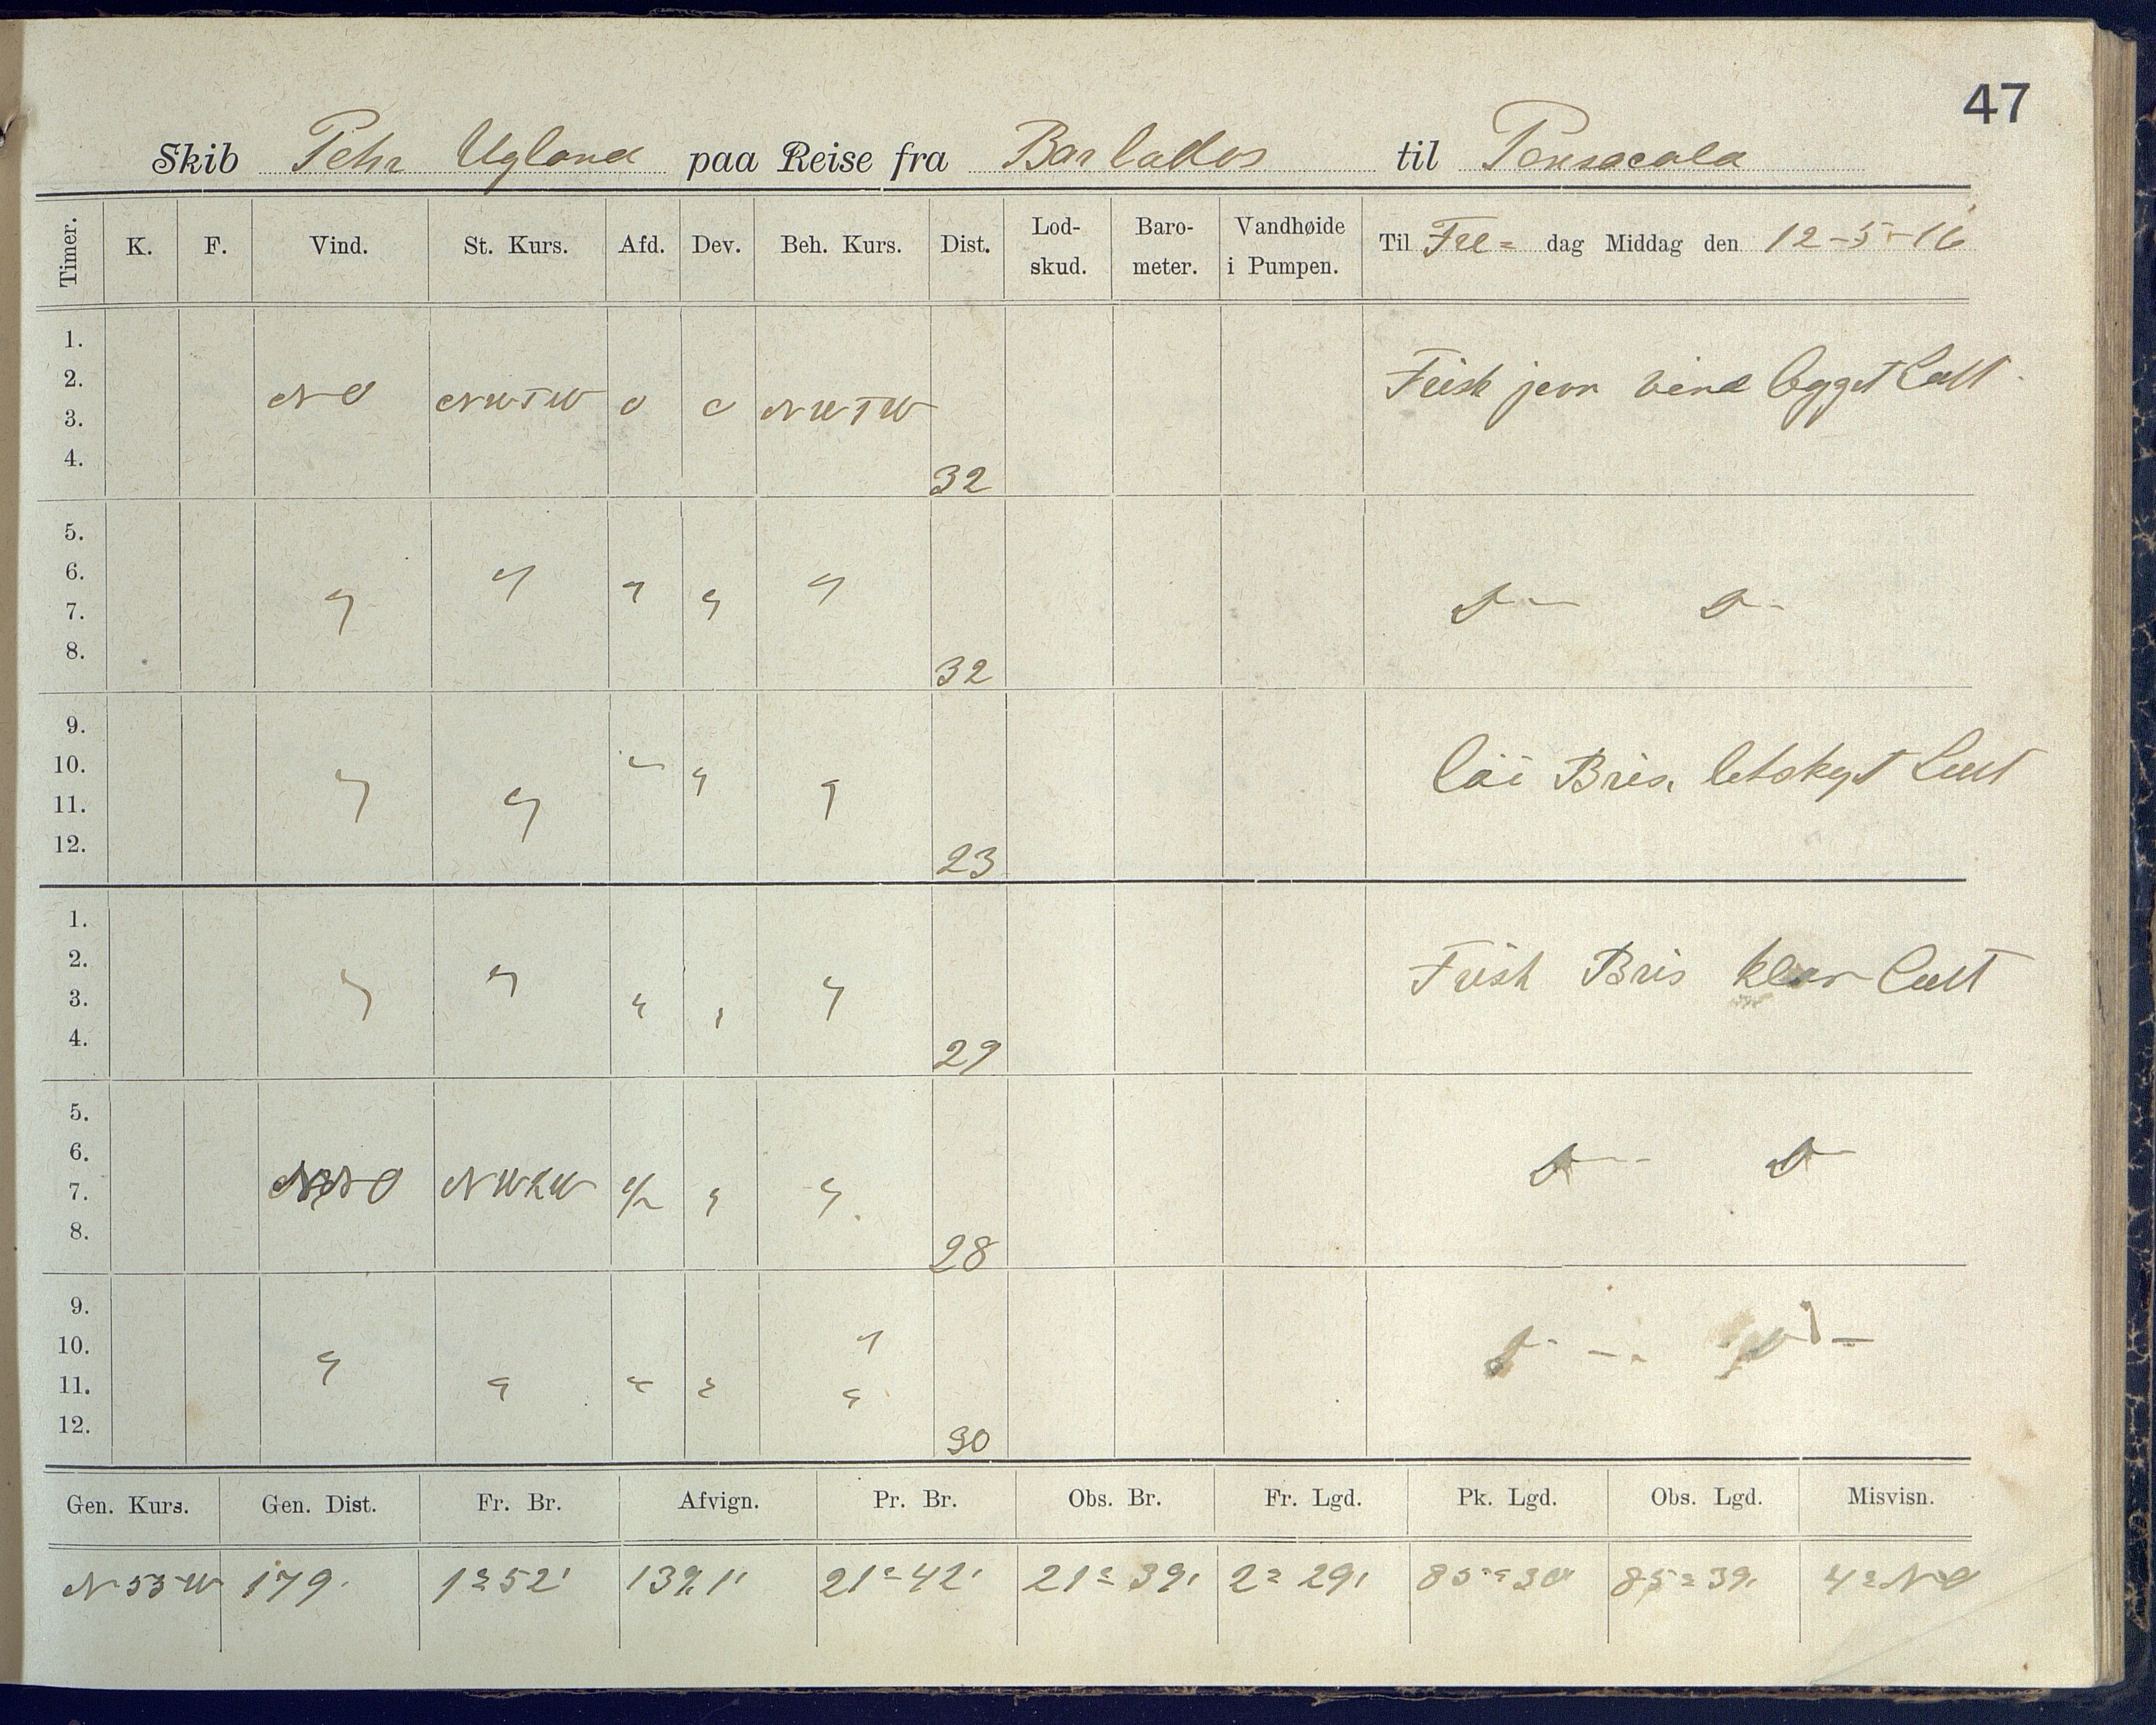 47
Skib Pehr Ugland paa Reise fra Barbados til Pensacola
Timer. K. F. Vind. St. Kurs. Afd. Dev. Beh. Kurs. Dist. Lod-skud. Baro-meter. Vandhøide i Pumpen. Til Fre= dag Middag den 12-5-16
1.
2. Frisk jevn vind bygget Luft
3. NO NWTW 0 0 NWTW
4. 32
5.
6. " " "
7. " " D- D-
8. 32
9.
10. " " Löi Bris. letskyet Luft
11. " " "
12. 23
1.
2. " Frisk Bris klar Luft
3. " " " "
4. 29
5.
6. D- D-
7. NNO NWKW 1/2 " "
8. 28
9.
10. " " D- -
11. " " " "
12. 30
Gen. Kurs. Gen. Dist. Fr. Br. Afvign. Pr. Br. Obs. Br. Fr. Lgd. Pk. Lgd. Obs. Lgd. Misvisn.
N 53 W 179. 1° 52' 139,1' 21° 42' 21° 39' 2° 29' 85° 30' 85° 39' 4° NO